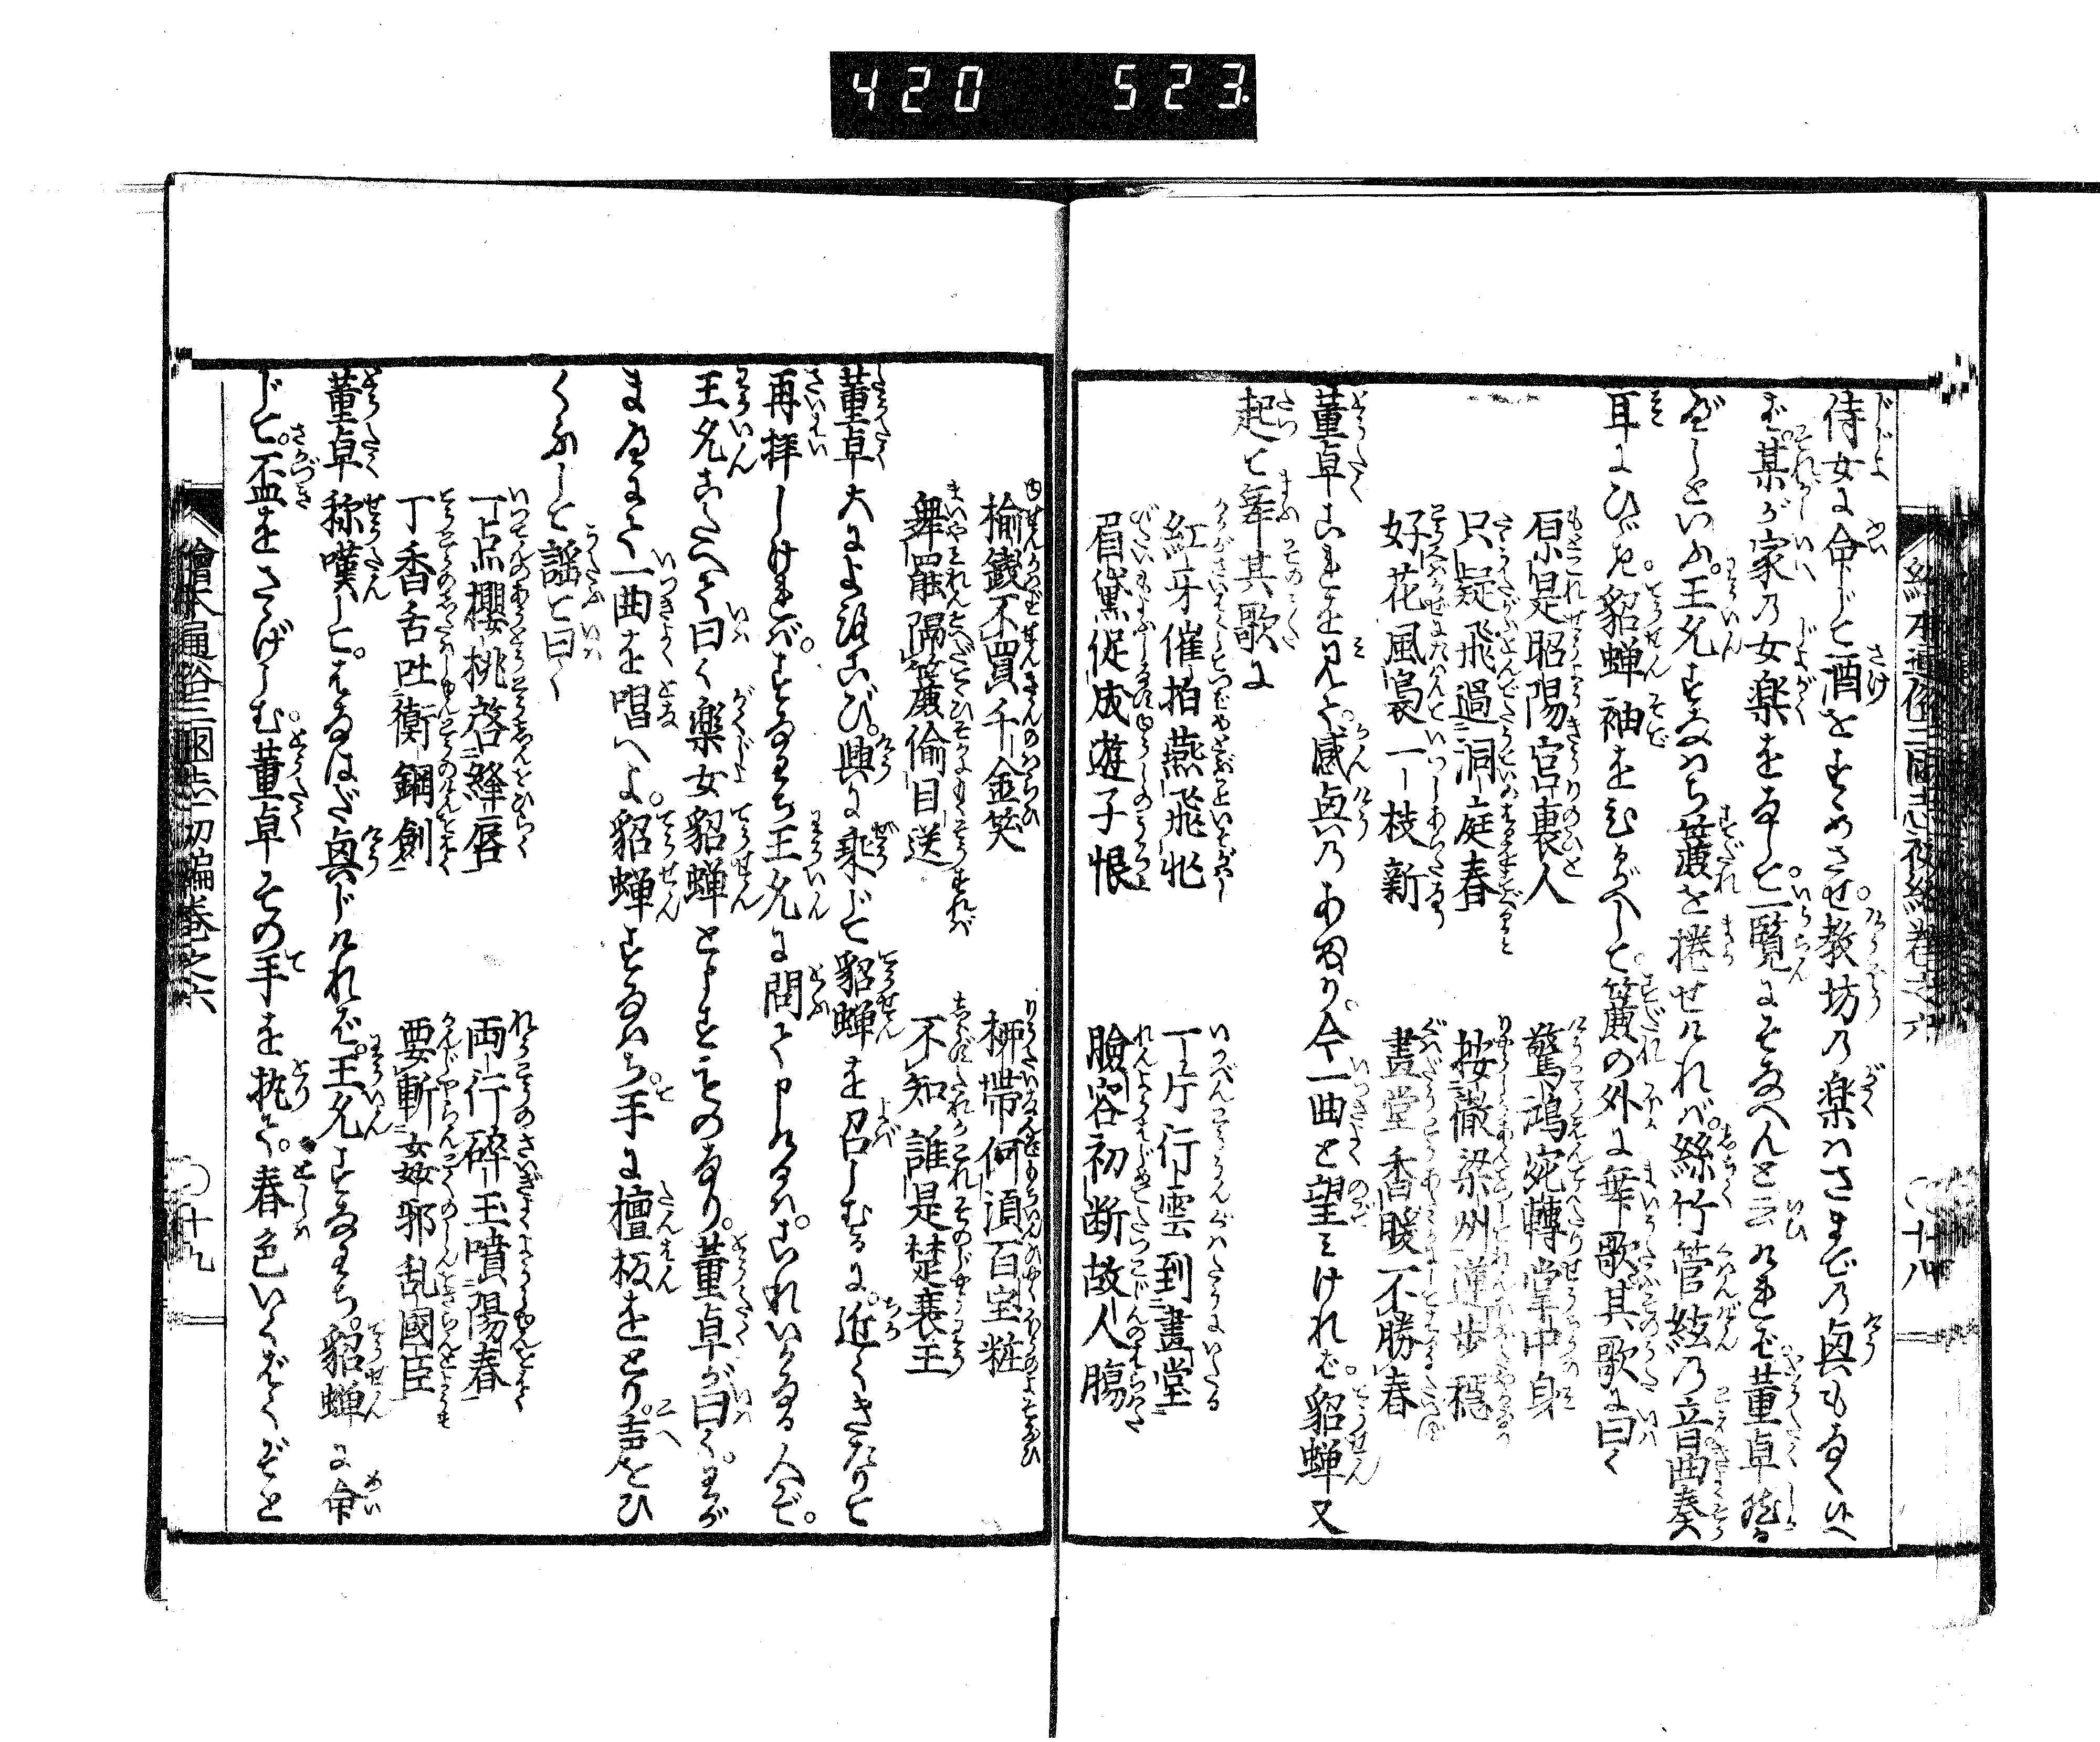 420 523.
侍女に命じて酒をすゝめさせ。教坊の楽はさまでの興もなく候へ
ど。某が家の女楽をなして。一覧にそなへんと云ければ董卓然る
べしといふ。王允すなはち簾を捲せければ。絲竹管絃の音曲奏
耳にひゞき。貂蝉袖をひるがへして。簾の外に舞歌其歌に曰く
原是昭陽宮裏人 驚鴻宛轉掌中身
只疑飛過洞庭春 按徹梁州蓮步穩
好花風裊一枝新 畫堂香暖不勝春
董卓これを見て。感興のあまり。今一曲と望みけれど。貂蝉又
起て舞其歌に
紅牙催拍燕飛忙 一片行雲到畫堂
眉黛促成遊子恨 臉容初断故人腸
榆錢不買千金笑 柳帯何須百宝粧
舞罷隔簾偷目送 不知誰是楚襄王
董卓大によろこび。興に乗じて貂蝉を召しむるに。近くきたりて
再拝しければ。すなはち王允に問て申けるは。これいかなる人ぞ。
王允こたへて曰く楽女貂蝉とまうすものなり。董卓が曰く。わが
まへにて一曲を唱へよ。貂蝉すなはち手に檀板をとり。声をひ
くふして謡て曰く
一点櫻桃啓絳唇 両行碎玉噴陽春
丁香舌吐衠鋼剣 要斬姦邪乱國臣
董卓称嘆して。はなはだ興じければ。王允すなはち。貂蝉に命
じて。盃をさゝげしむ。董卓その手を執て。春色いくばくぞと
繪本通俗三國志初編巻之六 〇十九